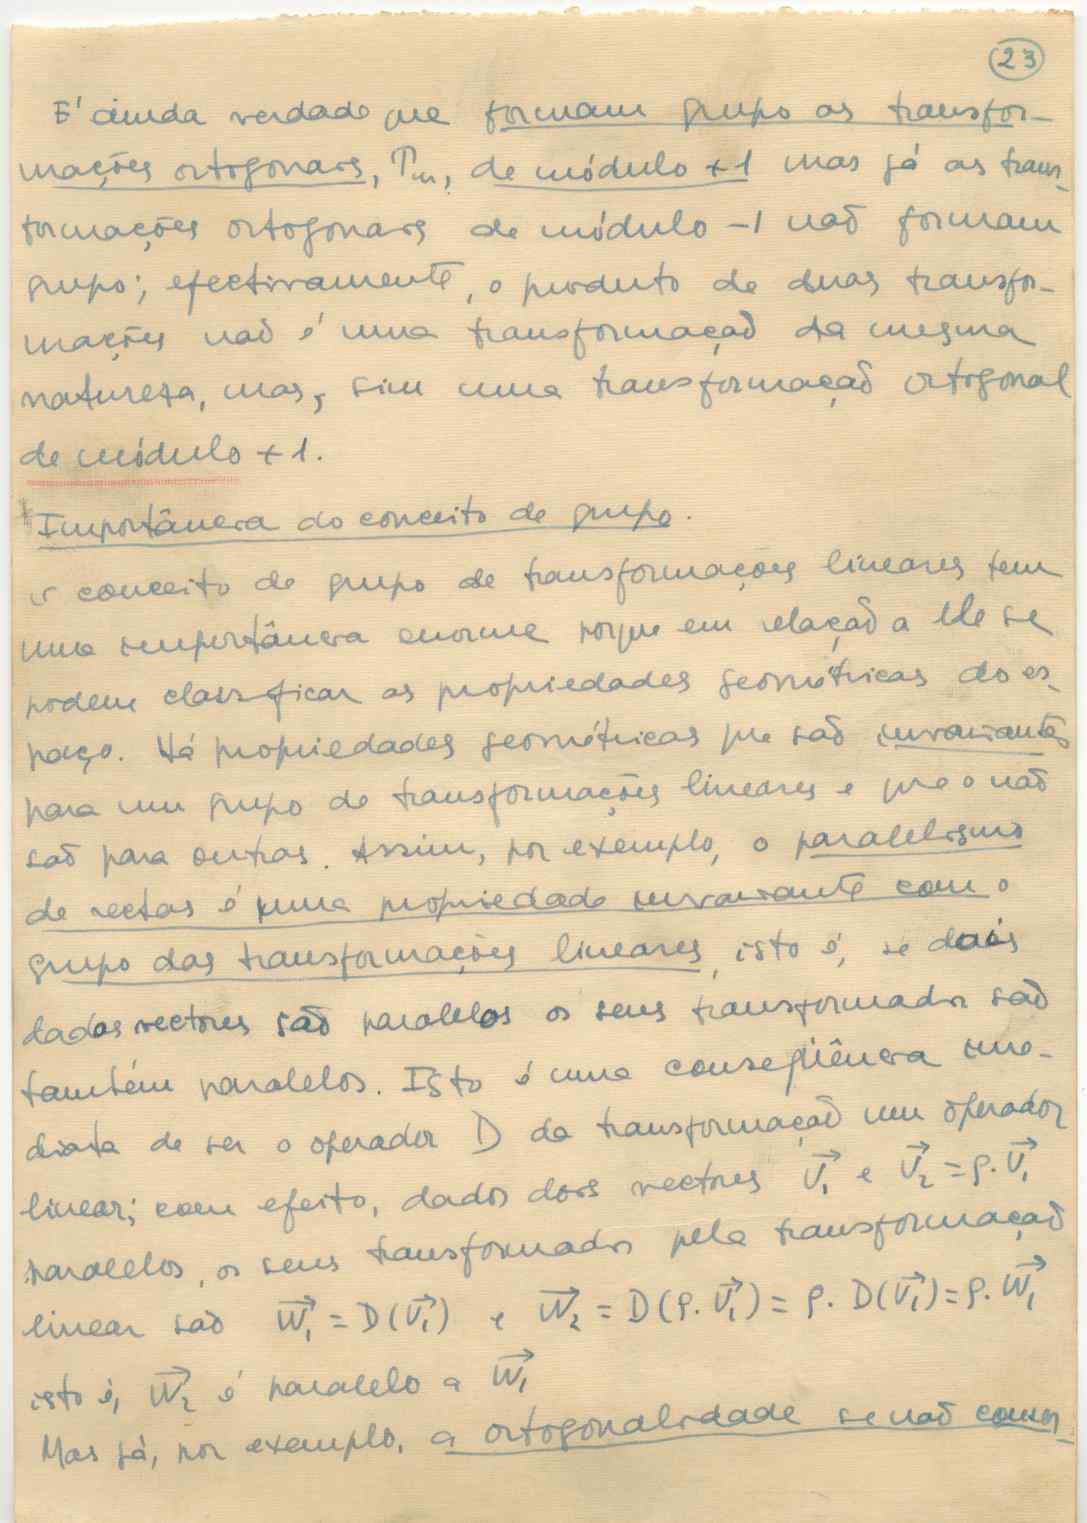 23
E' ainda verdade que formam grupo as transfor-
mações ortogonais, de módulo +1 mas já as trans-
formações ortogonais de módulo -1 não formam
grupo; efectivamente, o produto de duas transfor-
mações não é uma transformação da mesma
natureza, mas, sim uma transformação ortogonal
de módulo +1.
Importância do conceito de grupo.
O conceito de grupo de transformações lineares tem
uma importância enorme porque em relação a ele se
podem classificar as propriedades geométricas do es-
paço. Há propriedades geométricas que são invariantes
para um grupo de transformações lineares e que o não
são para outras. Assim, por exemplo, o paralelismo
de rectas é uma propriedade invariante com o
grupo das transformações lineares, isto é, se dois
dados vectores são paralelos os seus transformados são
também paralelos. Isto é uma conseqüência ime-
diata de ser o operador D da transformação um operador
linear; com efeito, dados dois vectores V⃗₁ e V⃗₂ = ρ.V⃗₁
paralelos, os seus transformados pela transformação
linear são W⃗₁ = D(V⃗₁) e W⃗₂ = D(ρ.V⃗₁) = ρ. D(V⃗₁) = ρ.W⃗₁
isto é, W⃗₂ é paralelo a W⃗₁
Mas já, por exemplo, a ortogonalidade se não conser-